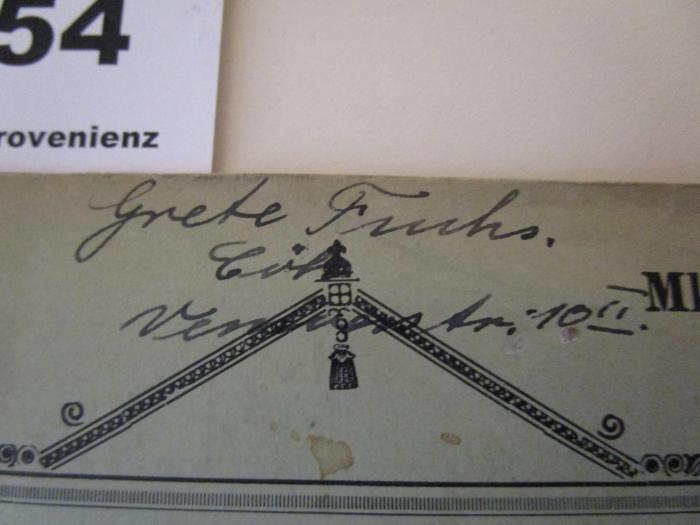 54
rovenienz
Grete Fuchs.
Cöln
str. 10 II.
M